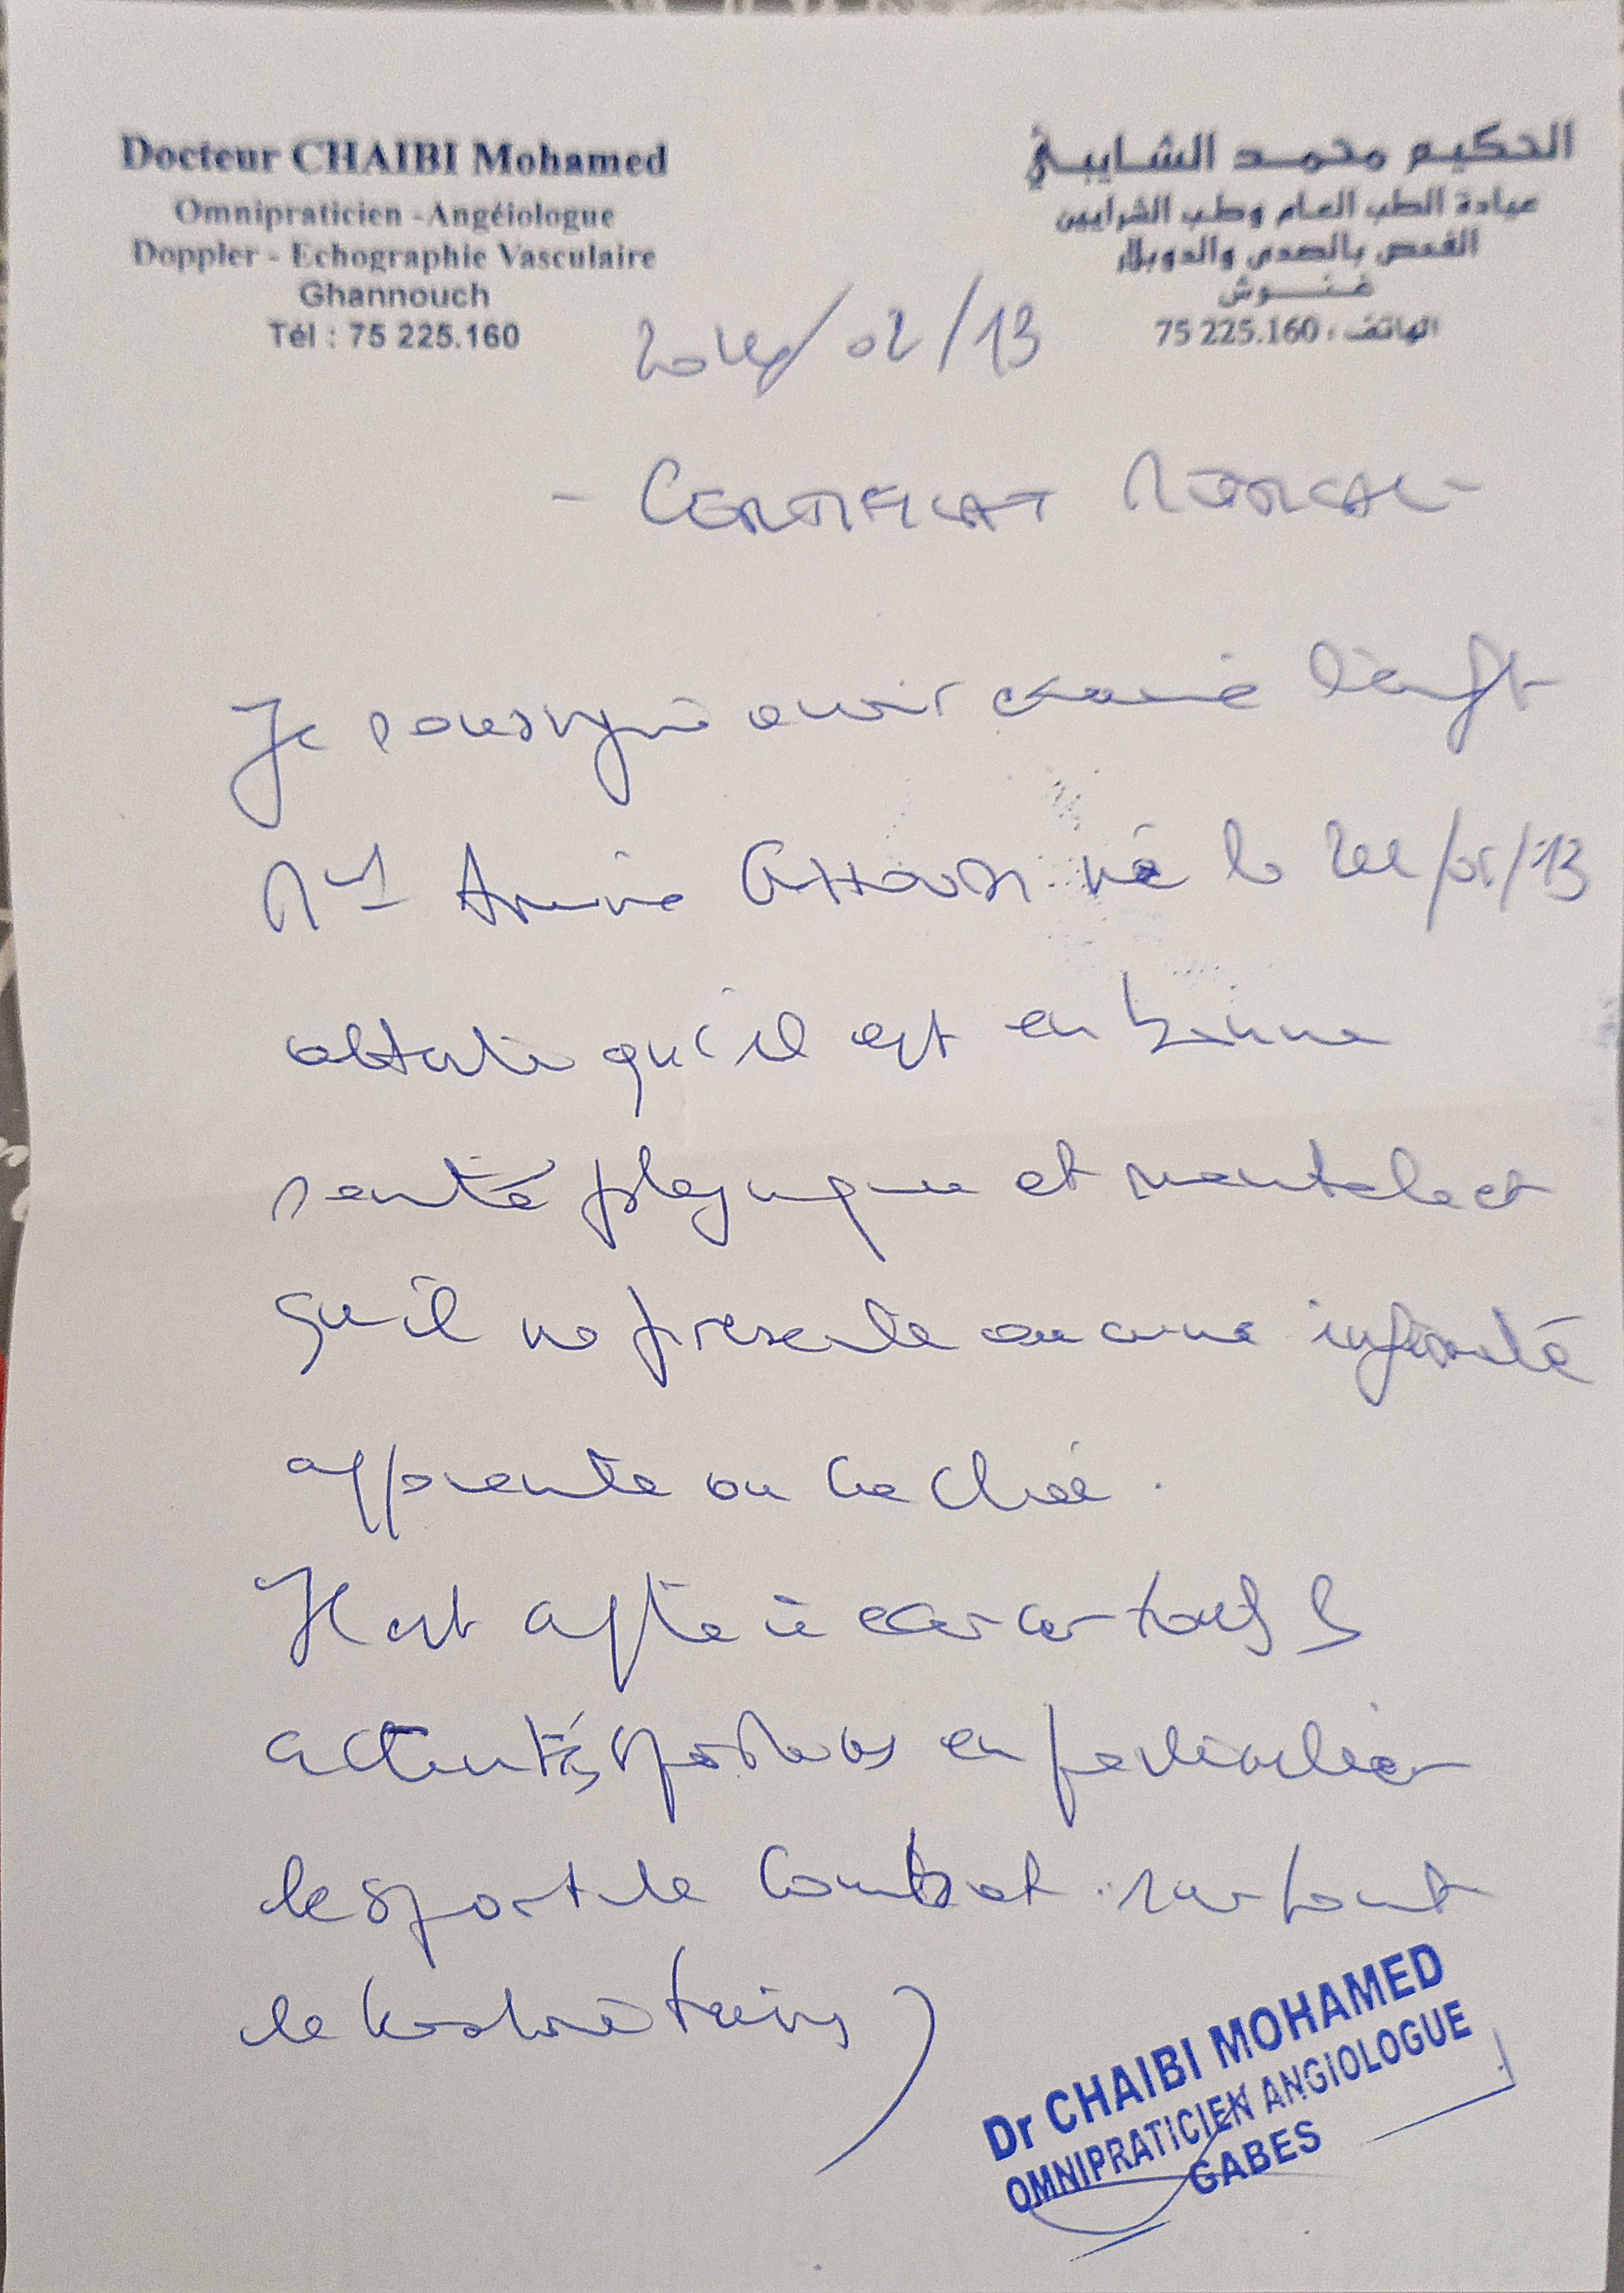 Docteur CHAIBI Mohamed
Omnipraticien - Angéiologue
Doppler - Echographie Vasculaire
Ghannouch
Tél : 75 225.160
الحكيم محمد الشايبي
عيادة الطب العام وطب الشرايين
الفحص بالصدى والدوبلار
غنوش
الهاتف : 75 225.160
/ 02 / 13
- CERTIFICAT MEDICAL -
Je soussigné avoir examiné l'enft
né le /13
atteste qu'il est en bonne
santé physique et mentale et
qu'il ne présente aucune infirmité
apparente ou cachée.
Il est apte à exercer tous les
activités sportives en particulier
le sport de combat surtout
le
Dr CHAIBI MOHAMED
OMNIPRATICIEN ANGIOLOGUE
GABES